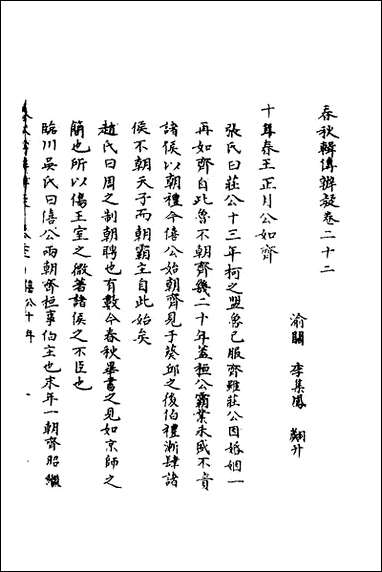 春秋輯傳辨疑卷二十二
渝關 李集鳳 翽升
十年春王正月公如齊
張氏曰莊公十三年柯之盟魯已服齊雖莊公因婚姻一
再如齊自此魯不朝齊幾二十年蓋桓公霸業未盛不責
諸侯以朝禮今僖公始朝齊見于葵邱之後伯禮漸肆諸
侯不朝天子而朝霸主自此始矣
趙氏曰周之制朝聘也有數今春秋畢書之見如京師之
簡也所以傷王室之微著諸侯之不臣也
臨川吳氏曰僖公兩朝齊桓事伯主也末年一朝齊昭繼
春秋輯傳辨疑 卷之 僖公十年